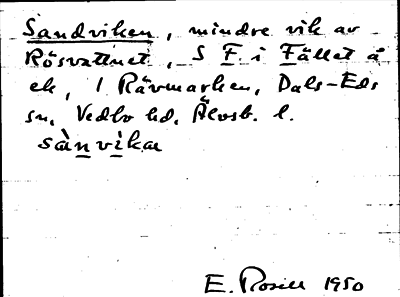 Sandviken, mindre vik av
Rösvattnet, S F. i Fället å
ek, 1 Rävmarken, Dals-Eds
sn, Vedbo hd. Älvsb. l.
sànvìka
E. Rosell 1950